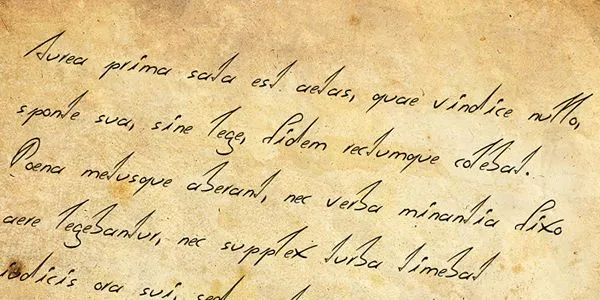 Aurea prima sata est aetas, quae vindice nullo,
sponte sua, sine lege, fidem rectumque colebat.
Poena metusque aberant, nec verba minantia fixo
aere legebantur, nec supplex turba timebat
iudicis ora sui, sed